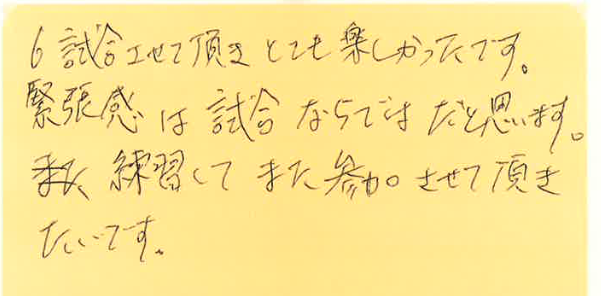 6試合させて頂きとても楽しかったです。
緊張感は試合ならではだと思います。
また、練習してまた参加させて頂き
たいです。